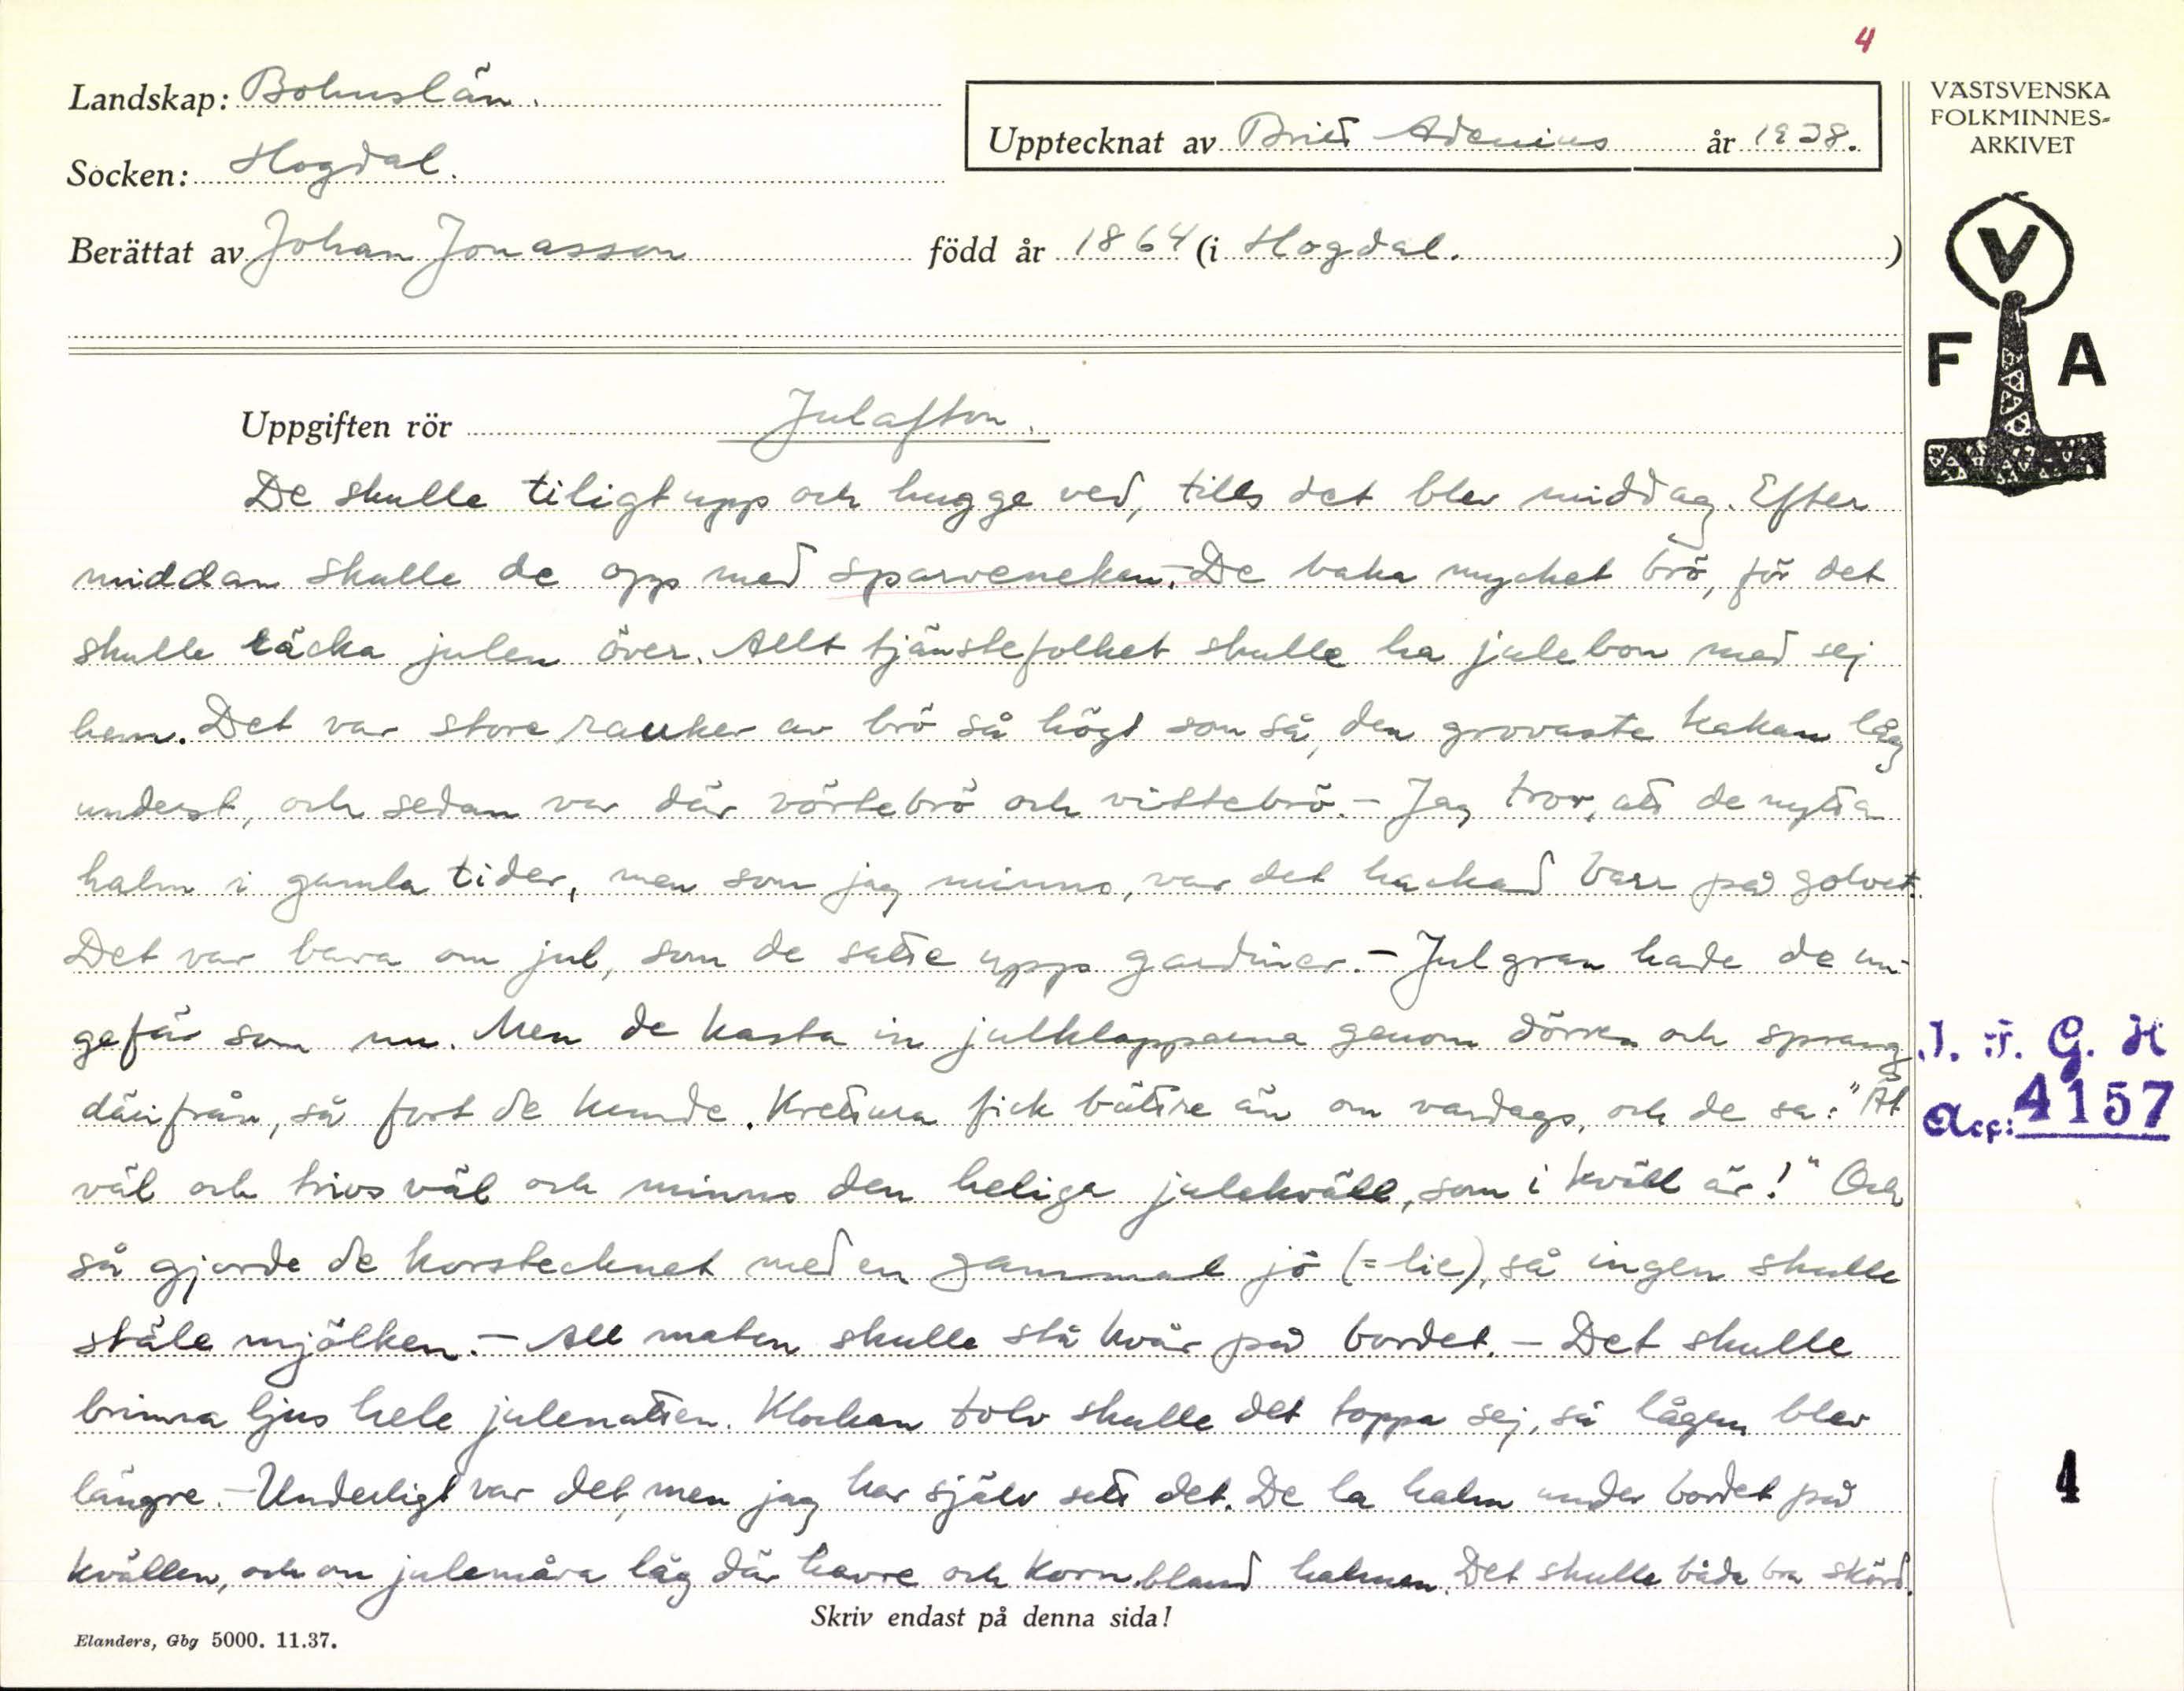 4
Landskap: Bohuslän.
Upptecknat av Brit Adenius år 1938.
VÄSTSVENSKA
FOLKMINNES-
ARKIVET
Socken: Hogdal.
Berättat av Johan Jonasson född år 1864 (i Hogdal.)
V
F A
Uppgiften rör Julafton.
De skulle tiligt upp och hugge ved, tills det blev middag. Efter
middan skulle de opp med sparveneken. - De baka mycket brö, för det
skulle räcka julen över. Allt tjänstefolket skulle ha julebon med sej
hem. Det var store rauker av brö så högt som så, den grovaste kakan låg
underst, och sedan var där vörtebrö och vittebrö. - Jag tror, att de nytta
halm i gamla tider, men som jag minns, var det hackad barr på golvet.
Det var bara om jul, som de satte upp gardiner. - Julgran hade de un-
gefär som nu. Men de kasta in julklapparna genom dörren och sprang
därifrån, så fort de kunde. Kretura fick bättre än om vardags, och de sa: "Ät
väl och trivs väl och minns den helige julekväll, som i kväll är!" Och
så gjorde de korstecknet med en gammal jö (= lie), så ingen skulle
stäle mjölken. - All maten skulle stå kvar på bordet. - Det skulle
brinna ljus hele julenatten. Klockan tolv skulle det toppa sej, så lågen blev
längre. - Underligt var det, men jag har själv sett det. De la halm under bordet på
kvällen, och om julemåra låg där havre och korn bland halmen. Det skulle båda bra skörd.
I. F. G. H
Acc: 4157
4
Skriv endast på denna sida!
Elanders, Gbg 5000. 11.37.